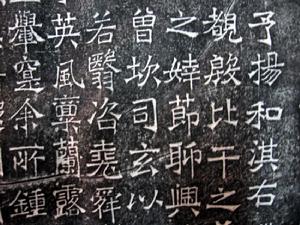 予揚和淇右
覩殷比干之
之婞節聊興
曾坎司玄以
若翳咨堯舜
英風稟蘭露
蹇余所鍾